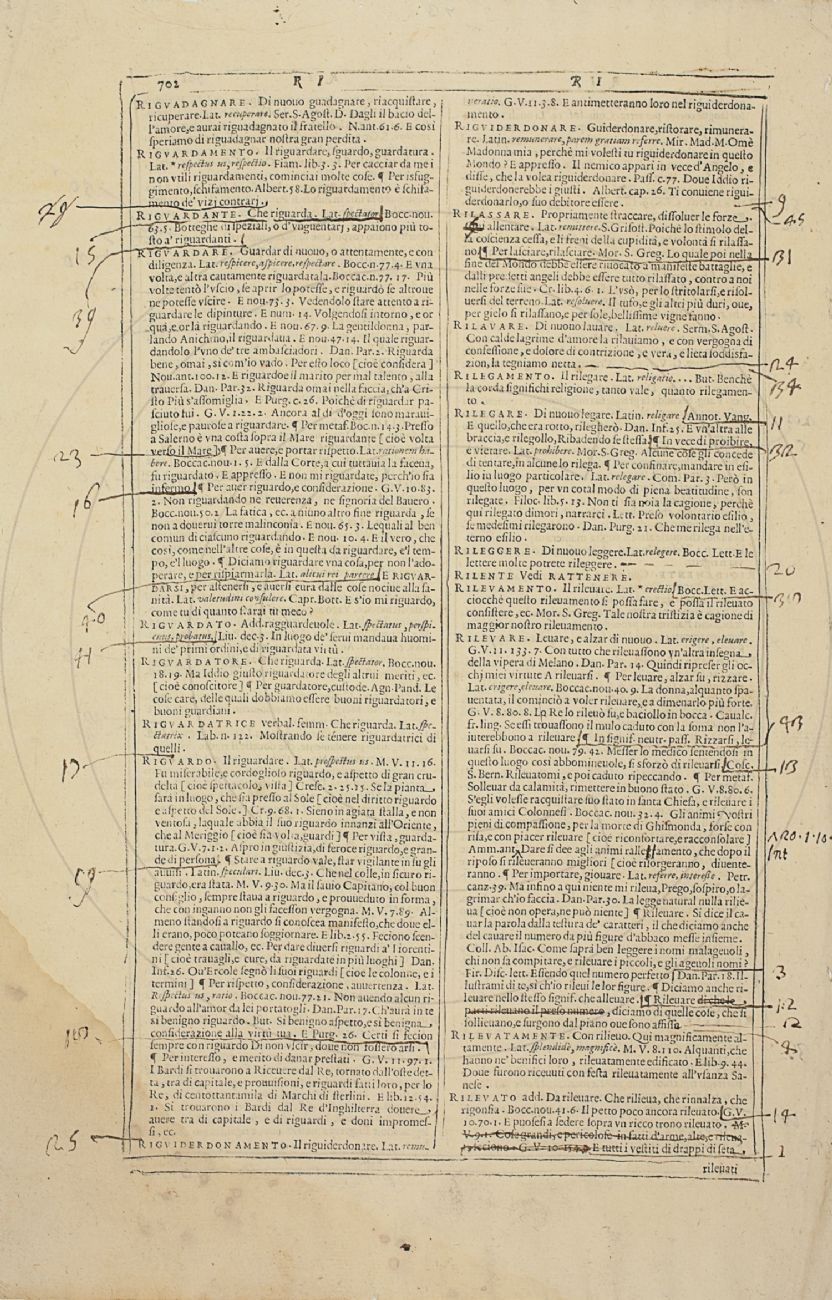 702 R I R I
RIGVADAGNARE. Di nuouo guadagnare, riacquistare,
ricuperare. Lat. recuperare. Ser. S. Agost. D. Dagli il bacio del-
l'amore, e aurai riguadagnato il fratello. N. ant. 61. 6. E così
speriamo di riguadagnar nostra gran perdita.
RIGVARDAMENTO. Il riguardare, sguardo, guardatura.
Lat. respectus us, respectio. Fiam. lib. 3. 3. Per cacciar da me i
non vtili riguardamenti, cominciai molte cose. ¶ Per isfug-
gimento, schifamento. Albert. 58. Lo riguardamento è schifa-
mento de' vizi contrari.
29
RIGVARDANTE. Che riguarda. Lat. spectator. Bocc. nou.
63. 5. Botteghe di speziali, o d'vnguentarj, appaiono più to-
15
sto a' riguardanti.
RIGVARDARE. Guardar di nuouo, o attentamente, e con
diligenza. Lat. respicere, aspicere, respectare. Bocc. n. 77. 4. E vna
volta, e altra cautamente riguardatala. Boccac. n. 77. 17. Più
volte tentò l'vscio, se aprir lo potesse, e riguardò se altroue
39
ne potesse vscire. E nou. 73. 3. Vedendolo stare attento a ri-
guardare le dipinture. E num. 14. Volgendosi intorno, e or
quà, e or là riguardando. E nou. 67. 9. La gentildonna, par-
lando Anichino, il riguardaua. E nou. 47. 14. Il quale riguar-
dandolo l'vno de' tre ambasciadori. Dan. Par. 2. Riguarda
bene, omai, sì com'io vado. Per esto loco [cioè considera]
Nou. ant. 100. 12. E riguardoe il marito per mal talento, alla
trauersa. Dan. Par. 32. Riguarda omai nella faccia, ch'a Cri-
sto Più s'assomiglia. E Purg. c. 26. Poichè di riguardar pa-
sciuto fui. G. V. 1. 22. 2. Ancora al dì d'oggi sono maraui-
gliose, e paurose a riguardare. ¶ Per metaf. Boc. n. 14. 3. Presso
a Salerno è vna costa sopra il Mare riguardante [cioè volta
23
verso il Mare] ¶ Per auere, e portar rispetto. Lat. rationem ha-
bere. Boccac. nou. 1. 5. E dalla Corte, a cui tuttauia la facena,
fù riguardato. E appresso. E non mi riguardate, perch'io sia
16
infermo. ¶ Per auer riguardo, e considerazione. G. V. 10. 83.
2. Non riguardando nè reuerenza, nè signoria del Bauero.
Bocc. nou. 50. 2. La fatica, ec. a niuno altro fine riguarda, se
non a douerui torre malinconia. E nou. 65. 3. Lequali al ben
comun di ciascuno riguardando. E nou. 10. 4. E il vero, che
così, come nell'altre cose, è in questa da riguardare, e 'l tem-
po, e 'l luogo. ¶ Diciamo riguardare vna cosa, per non l'ado-
perare, e per rispiarmarla. Lat. alicui rei parcere. E RIGVAR-
DARSI, per astenersi, e auersi cura dalle cose nociue alla sa-
nità. Lat. valetudini consulere. Capr. Bott. E s'io mi riguardo,
come tu dì quanto starai tu meco?
40
RIGVARDATO. Add. ragguardeuole. Lat. spectatus, perspi-
cuus, probatus. Liu. dec. 3. In luogo de' serui mandaua huomi-
41
ni de' primi ordini, e di riguardata virtù.
RIGVARDATORE. Che riguarda. Lat. spectator. Bocc. nou.
18. 19. Ma Iddio giusto riguardatore degli altrui meriti, ec.
[cioè conoscitore] ¶ Per guardatore, custode. Agn. Pand. Le
cose care, delle quali dobbiamo essere buoni riguardatori, e
buoni guardiani.
RIGVARDATRICE verbal. femm. Che riguarda. Lat. spe-
ctatrix. Lab. n. 122. Mostrando se tenere riguardatrici di
quelli.
RIGVARDO. Il riguardare. Lat. prospectus us. M. V. 11. 16.
Fu miserabile, e cordoglioso riguardo, e aspetto di gran cru-
deltà [cioè spettacolo, vista] Cresc. 2. 25. 15. Se la pianta
sarà in luogo, che sia presso al Sole [cioè nel diritto riguardo
e aspetto del Sole.] Cr. 9. 68. 1. Sieno in agiata stalla, e non
ventosa, laquale abbia il suo riguardo innanzi all'Oriente,
che al Meriggio [cioè sia volta, guardi] ¶ Per vista, guarda-
tura. G. V. 7. 1. 2. Aspro in giustizia, di feroce riguardo, e gran-
de di persona. ¶ Stare a riguardo vale, star vigilante in su gli
auuisi. Latin. speculari. Liu. dec. 3. Che nel colle, in sicuro ri-
guardo, era stata. M. V. 9. 30. Ma il sauio Capitano, col buon
consiglio, sempre staua a riguardo, e proueduto in forma,
che con inganno non gli facesson vergogna. M. V. 7. 89. Al-
meno standosi a riguardo si conoscea manifesto, che doue el-
li erano, poco poteano soggiornare. E lib. 2. 55. Feciono scen-
dere gente a cauallo, ec. Per dare diuersi riguardi a' Fiorenti-
ni [cioè trauagli, e cure, da riguardate in più luoghi] Dan.
Inf. 26. Ou'Ercole segnò li suoi riguardi [cioè le colonne, e i
termini] ¶ Per rispetto, considerazione, auuertenza. Lat.
Respectus us, ratio. Boccac. nou. 77. 21. Non auendo alcun ri-
guardo all'amor da lei portatogli. Dan. Par. 17. Ch'aurà in te
sì benigno riguardo. But. Sì benigno aspetto, e sì benigna
considerazione alla virtù tua. E Purg. 26. Certi si fecion
sempre con riguardo Di non vscir, doue non fossero arsi.
¶ Per interesso, e merito di danar prestati. G. V. 11. 97. 1.
I Bardi si trouarono a Riceuere dal Re, tornato dall'oste det-
ta, tra di capitale, e prouuisioni, e riguardi fatti loro, per lo
Re, di centottantamila di Marchi di sterlini. E lib. 12. 54.
2. Si trouarono i Bardi dal Re d'Inghilterra douere
auere tra di capitale, e di riguardi, e doni impromes-
si, ec.
25
RIGVIDERDONAMENTO. Il riguiderdonare. Lat. remu-
neratio. G. V. 11. 3. 8. E antimetteranno loro nel riguiderdona-
mento.
RIGVIDERDONARE. Guiderdonare, ristorare, rimunera-
re. Latin. remunerare, parem gratiam referre. Mir. Mad. M. Omè
Madonna mia, perchè mi volesti tu riguiderdonare in questo
Mondo? E appresso. Il nemico apparì in vece d'Angelo, e
disse, che la volea riguiderdonare. Pass. c. 77. Doue Iddio ri-
guiderdonerebbe i giusti. Albert. cap. 26. Ti conuiene rigui-
derdonarlo, o suo debitore essere.
9
RILASSARE. Propriamente straccare, dissoluer le forze
45
allentare. Lat. remittere. S. Grisost. Poichè lo stimolo del-
la coscienza cessa, e li freni della cupidità, e volontà si rilassa-
no. ¶ Per lasciare, rilasciare. Mor. S. Greg. Lo quale poi nella
31
fine del Mondo debbe essere riuocato a manifeste battaglie, e
dalli predetti angeli debbe essere tutto rilassato, contro a noi
nelle forze sue. Cr. lib. 4. 6. 1. L'vsò, per lo stritolarsi, e risol-
uersi del terreno. Lat. resoluere. Il tufo, e gli altri più duri, oue,
per gielo si rilassano, e per sole, bellissime vigne fanno.
RILAVARE. Di nuouo lauare. Lat. reluere. Serm. S. Agost.
Con calde lagrime d'amore la rilauiamo, e con vergogna di
confessione, e dolore di contrizione, e vera, e lieta soddisfa-
zion, la tegniamo netta.
24
RILEGAMENTO. Il rilegare. Lat. religatio. . . . But. Benchè
34
la corda significhi religione, tanto vale, quanto rilegamen-
to.
RILEGARE. Di nuouo legare. Latin. religare. Annot. Vang.
11
E quello, che era rotto, rilegherò. Dan. Inf. 25. E vn'altra alle
braccia, e rilegollo, Ribadendo se stessa. ¶ In vece di proibire,
32
e vietare. Lat. prohibere. Mor. S. Greg. Alcune cose gli concede
di tentare, in alcune lo rilega. ¶ Per confinare, mandare in esi-
lio in luogo particolare. Lat. relegare. Com. Par. 3. Però in
questo luogo, per vn cotal modo di piena beatitudine, son
rilegate. Filoc. lib. 5. 13. Non ti sia noia la cagione, perchè
quì rilegato dimori, narrarci. Lett. Preso volontario esilio,
se medesimi rilegarono. Dan. Purg. 21. Che me rilega nell'e-
terno esilio.
RILEGGERE. Di nuouo leggere. Lat. relegere. Bocc. Lett. E le
lettere molte potrete rileggere.
20
RILENTE Vedi RATTENERE.
RILEVAMENTO. Il rileuare. Lat. erectio. Bocc. Lett. E ac-
30
ciocchè questo rileuamento si possa fare, e possa il rileuato
consistere, ec. Mor. S. Greg. Tale nostra tristizia è cagione di
maggior nostro rileuamento.
RILEVARE. Leuare, e alzar di nuouo. Lat. erigere, eleuare.
G. V. 11. 133. 7. Con tutto che rileuassono vn'altra insegna
della vipera di Melano. Dan. Par. 14. Quindi ripreser gli oc-
chj miei virtute A rileuarsi. ¶ Per leuare, alzar su, rizzare.
Lat. erigere, eleuare. Boccac. nou. 40. 9. La donna, alquanto spa-
uentata, il cominciò a voler rileuare, e a dimenarlo più forte.
G. V. 8. 80. 8. Lo Re lo rileuò su, e baciollo in bocca. Caualc.
fr. ling. Se essi trouassono il mulo caduto con la soma non l'a-
iuterebbono a rileuare. ¶ In signif. neutr. pass. Rizzarsi, le-
uarsi su. Boccac. nou. 79. 42. Messer lo medico sentendosi in
questo luogo così abbomineuole, si sforzò di rileuarsi. Cosc.
S. Bern. Rileuatomi, e poi caduto ripeccando. ¶ Per metaf.
Solleuar da calamità, rimettere in buono stato. G. V. 8. 80. 6.
S'egli volesse racquistare suo stato in santa Chiesa, e rileuare i
suoi amici Colonnesi. Boccac. nou. 32. 4. Gli animi vostri
pieni di compassione, per la morte di Ghismonda, forse con
risa, e con piacer rileuare [cioè riconfortare, e racconsolare]
Amm. ant. Dare si dee agli animi rallettamento, che dopo il
riposo si rileueranno migliori [cioè risorgeranno, diuente-
ranno. ¶ Per importare, giouare. Lat. referre, interesse. Petr.
canz. 39. Ma infino a qui niente mi rileua, Prego, sospiro, o la-
grimar ch'io faccia. Dan. Par. 30. La legge natural nulla rilie-
ua [cioè non opera, ne può niente] ¶ Rileuare. Si dice il ca-
uar la parola dalla testura de' caratteri, il che diciamo anche
del cauare il numero da più figure d'abbaco messe insieme.
Coll. Ab. Isac. Come saprà ben leggere i nomi malageuoli,
chi non sa compitare, e rileuare i piccoli, e gli ageuoli nomi?
Fir. Disc. lett. Essendo quel numero perfetto. Dan. Par. 18. Il-
3
lustrami di te, sì ch'io rileui le lor figure. ¶ Diciamo anche ri-
leuare nello stesso signif. che alleuare. ¶ Rileuare dichole
12
parti rileuano il preso numero, diciamo di quelle cose, che si
solieuano, e surgono dal piano oue sono affissa.
RILEVATAMENTE. Con rilieuo. Qui magnificamente al-
tamente. Lat. splendidè, magnificè. M. V. 8. 110. Alquanti, che
hanno ne' benifici loro, rileuatamente edificato. E lib. 9. 44.
Doue furono riceuuti con festa rileuatamente all'vsanza Sa-
nese.
RILEVATO add. Da rileuare. Che rilieua, che rinnalza, che
rigonfia. Bocc. nou. 41. 6. Il petto poco ancora rileuato. G. V.
14
10. 70. 1. E puosesi a sedere sopra vn ricco trono rileuato. M.
V. 9. 1. Cose grandi, e pericolose in fatti d'arme, alte, e rileua-
E tutti i vestiti di drappi di seta,
1
rileuati